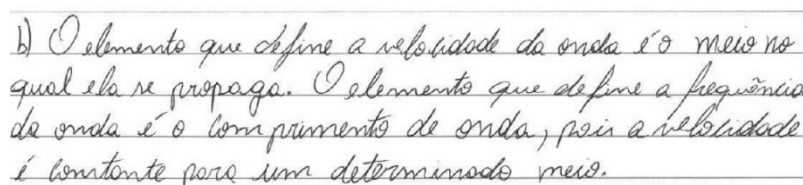 b) O elemento que define a velocidade da onda é o meio no
qual ela se propaga. O elemento que define a frequência
da onda é o comprimento de onda, pois a velocidade
é constante para um determinado meio.